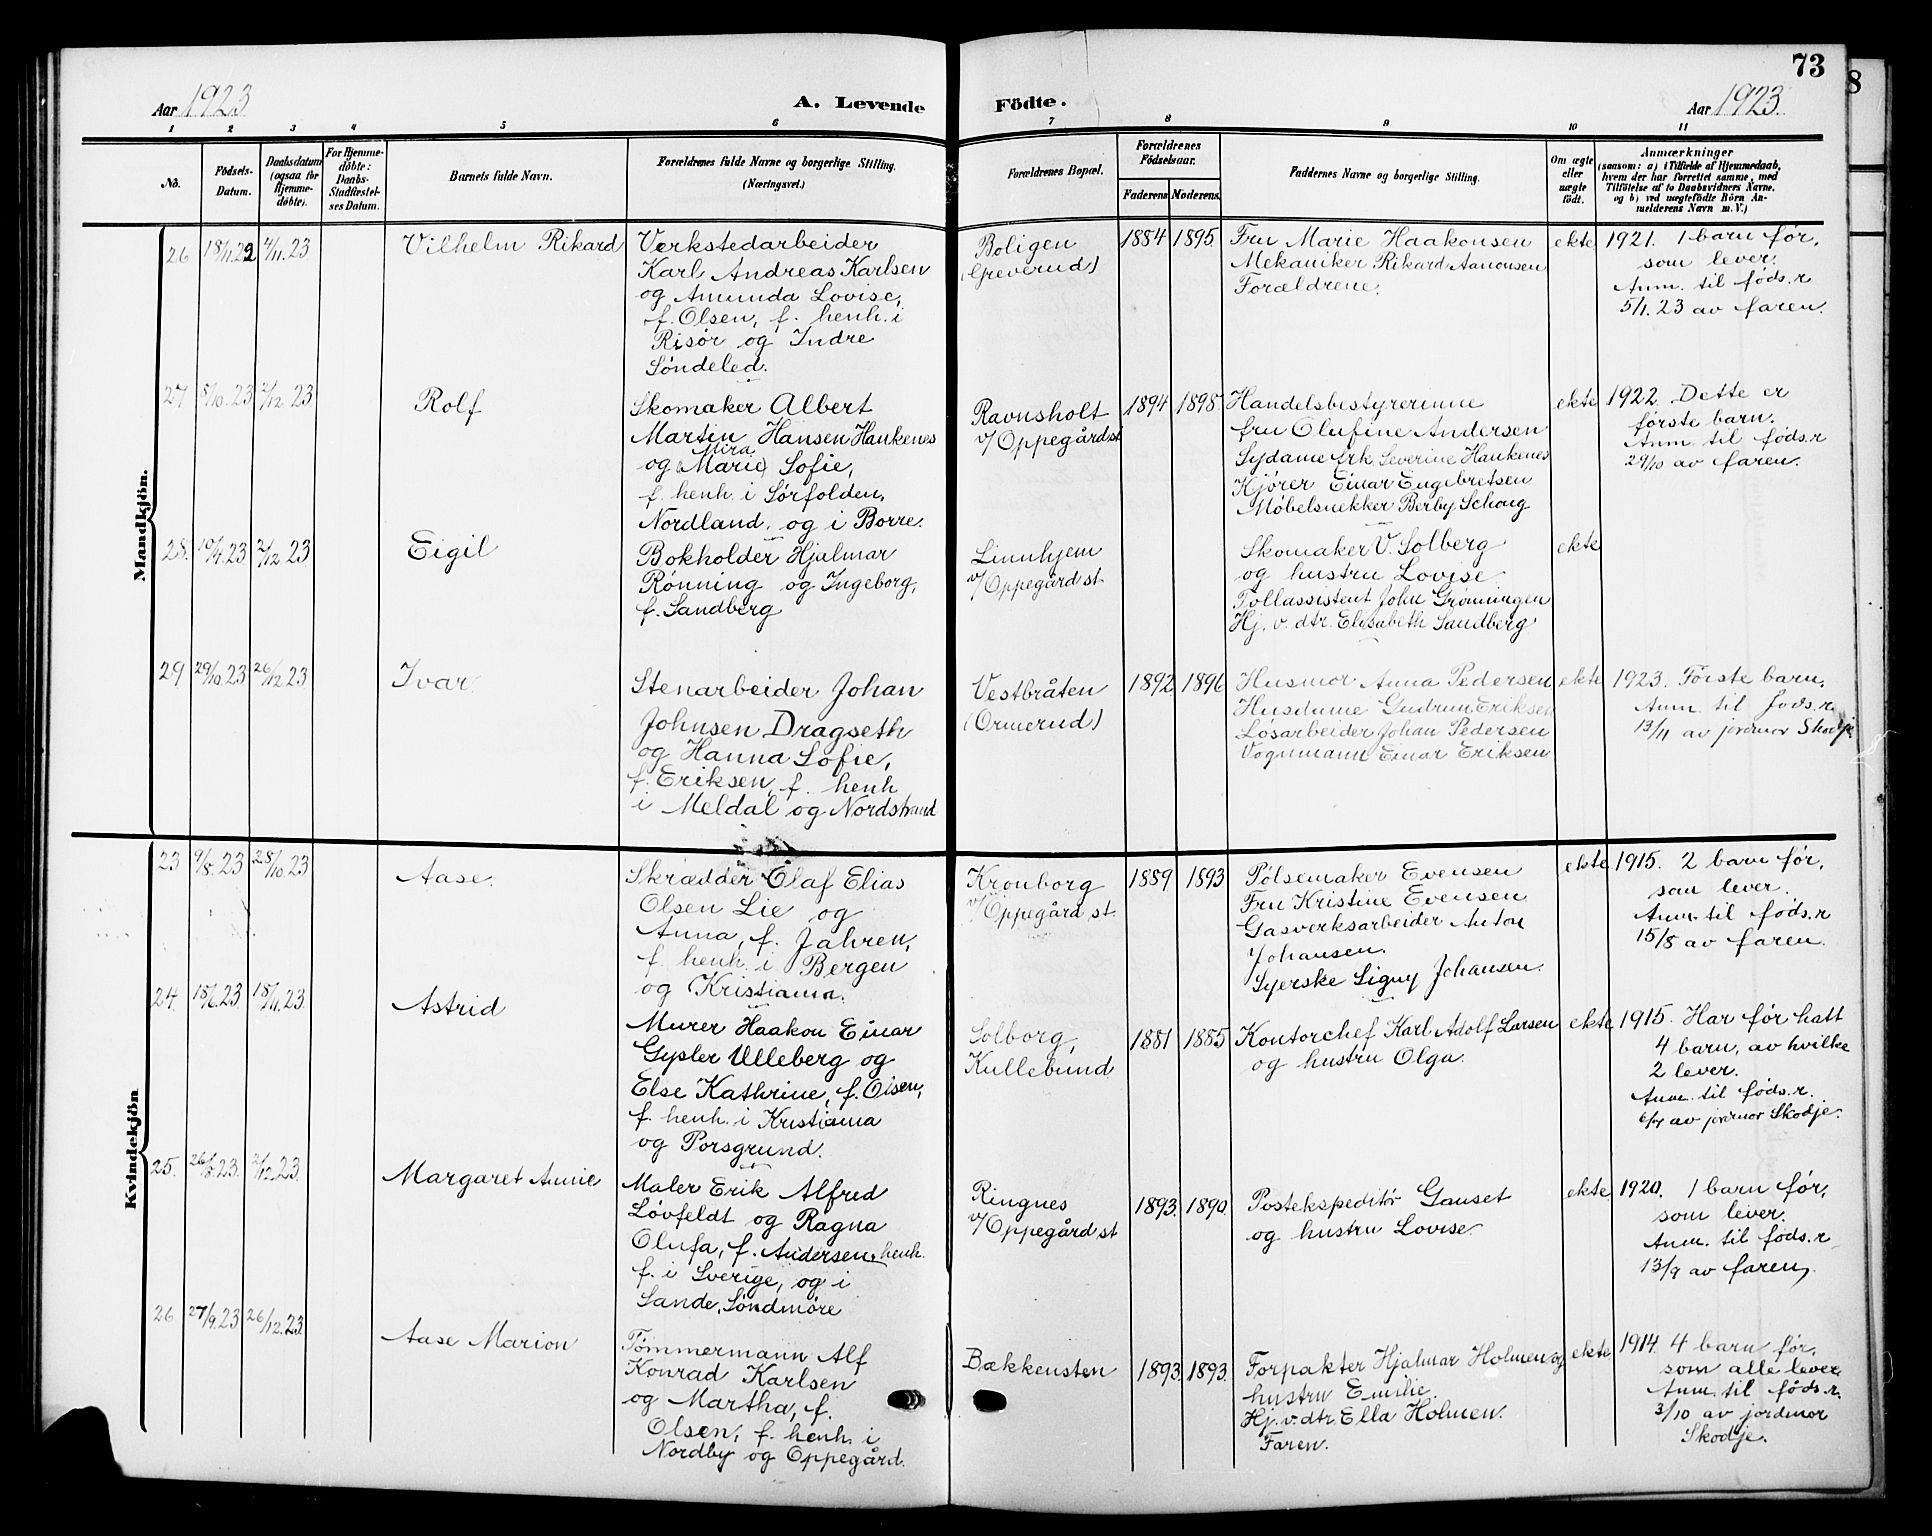 73
8
Aar 1923
A. Levende
Födte.
Aar 1923.
1 2 3 4 5 6 7 8 9 10 11
No.
Födsels-
Datum.
Daabsdatum
(ogsaa for
Hjemme-
döbte).
For Hjemme-
döbte:
Daabs-
Stadfæstel-
ses Datum.
Barnets fulde Navn.
Forældrenes fulde Navne og borgerlige Stilling.
(Næringsvei.)
Forældrenes Bopæl.
Forældrenes
Födselsaar.
Faderens
Moderens.
Faddernes Navne og borgerlige Stilling.
Om ægte
eller
uægte
født.
Anmærkninger
(saasom: a) i Tilfælde af Hjemmedaab,
hvem der har forrettet samme, med
Tilföielse af to Daabsvidners Navne.
og b) ved uægtefödte Börn An-
melderens Navn m. V.)
Mandkjön.
26 18/11.22 4/11.23
Vilhelm Rikard
Verkstedarbeider
Karl Andreas Karlsen
og Amunda Lovise,
f. Olsen, f. henh. i
Risør og Indre
Søndeled.
Boligen
(Greverud)
1884 1895.
Fru Marie Haakonsen
Mekaniker Rikard Aanonsen
Forældrene.
ekte
1921. 1 barn før,
som lever.
Anm. til føds.r
5/1.23 av faren.
27 5/10.23 2/12 23
Rolf
Skomaker Albert
Martin Hansen Haukenes
Mira
og (Marie) Sofie,
f. henh. i Sørfolden,
Nordland, og i Borre.
Ravnsholt
v/Oppegård st
1894 1898
Handelsbestyrerinne
fru Olufine Andersen
Sydame frk. Severine Haukenes
Kjører Einar Engebretsen
Møbelsnekker Berby Schoug
ekte
1922. Dette er
første barn.
Anm. til føds.r
29/10 av faren.
28. 10/4.23 2/12 23
Eigil
Bokholder Hjalmar
Rønning og Ingeborg,
f. Sandberg
Linnhjem
v/Oppegård st.
Skomaker V. Solberg
og hustru Lovise.
Tollassistent John Grønningen
Hj. v. dtr. Elisabeth Sandberg
ekte
29 29/10.23 26/12 23
Ivar.
Stenarbeider Johan
Johnsen Dragseth
og Hanna Sofie,
f. Eriksen, f. henh
i Meldal og Nordstrand
Vestbråten
(Ormerud)
1892 1896
Husmor Anna Pedersen
Husdame Gudrun Eriksen
Løsarbeider Johan Pedersen
Vognmann Einar Eriksen
ekte
1923. Første barn.
Anm. til føds.r.
13/11 av jordmor Skodje
Kvindekjön
23 9/8.23 28/10.23
Aase.
Skrædder Olaf Elias
Olsen Lie og
Anna, f. Jahren,
f. henh. i Bergen
og Kristiania.
Kronborg
v/Oppegård st.
1889 1893
Pølsemaker Evensen
Fru Kristine Evensen
Gasverksarbeider Anton
Johansen.
Syerske Signy Johansen.
ekte
1915. 2 barn før,
som lever.
Anm. til føds.r
15/8 av faren.
24. 18/6.23 18/11.23
Astrid
Murer Haakon Einar
Gysler Ulleberg og
Else Kathrine, f. Olsen,
f. henh. i Kristiania
og Porsgrund.
Solborg,
Kullebund
1881 1885
Kontorchef Karl Adolf Larsen
og hustru Olga.
ekte
1915. Har før hatt
4 barn, av hvilke
2 lever.
Anm. til føds.r.
6/7 av jordmor Skodje.
25. 26/8.23. 2/12.23.
Margaret Annie
Maler Erik Alfred
Løvfeldt og Ragna
Olufa, f. Andersen, henh.
f. i Sverige, og i
Sande, Søndmøre
Ringnes
v/Oppegård st
1893. 1890.
Postekspeditør Gauset
og hustru Lovise.
ekte
1920. 1 barn før,
som lever.
Anm. til føds.r
13/9 av faren.
26 27/9.23 26/12.23.
Aase Marion
Tømmermann Alf
Konrad Karlsen
og Martha, f.
Olsen, f. henh. i
Nordby og Oppegård.
Bækkensten
1893. 1893.
Forpakter Hjalmar Holmen og
hustru Emilie.
Hj. v. dtr. Ella Holmen.
Faren.
ekte
1914. 4 barn før,
som alle lever
Anm. til føds.r.
3/10 av jordmor
Skodje.